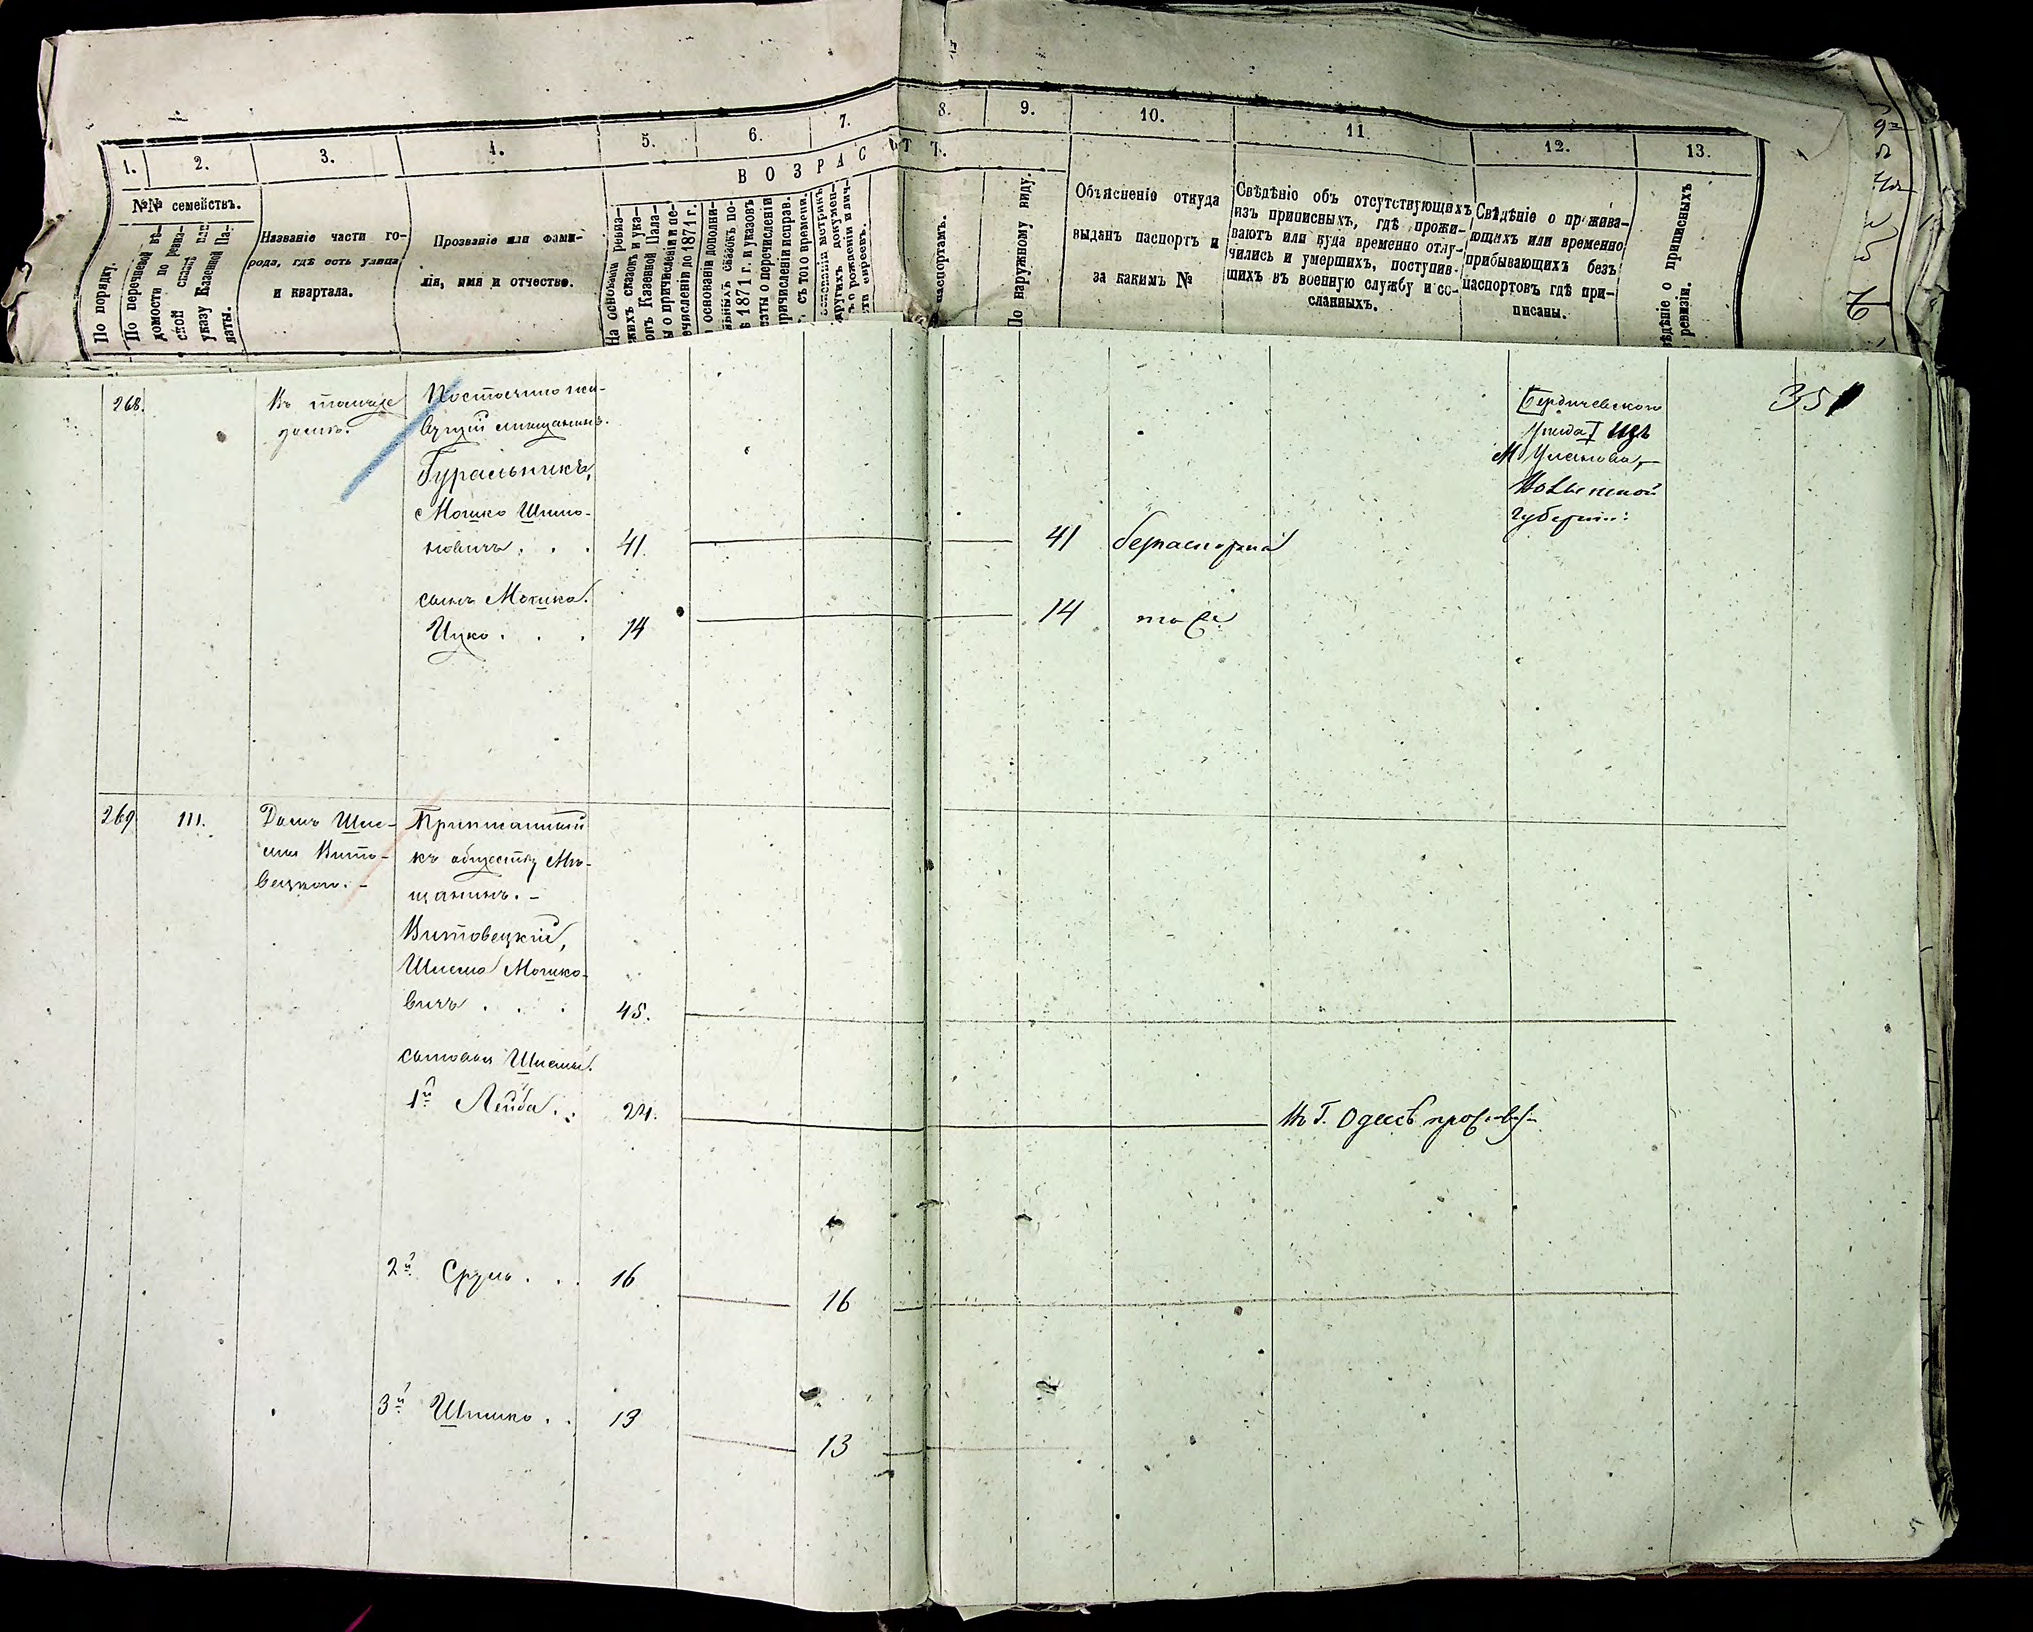 1. 2. 3. 4. 5. 6. 7. 8. 9. 10. 11. 12. 13.
ВОЗРАСТЪ.
№№ семействъ.
По порядку.
По перечневой вѣ-
домости по ревиз-
ской сказкѣ или
указу Казенной Па-
латы.
Названіе части го-
рода, гдѣ есть улица
и квартала.
Прозваніе или фами-
лія, имя и отчество.
На основаніи ревиз-
скихъ сказокъ и ука-
зовъ Казенной Пала-
ты о причисленіи и пе-
речисленіи до 1871 г.
основаніи дополни-
сказокъ по-
1871 г. и указовъ
о перечисленіи
причисленіи исправ.
съ того времени.
метрикъ
другихъ докумен-
о рожденіи и лич-
евреевъ.
паспортамъ.
По наружному виду.
Объясненіе откуда
выданъ паспортъ и
за какимъ №
Свѣдѣніе объ отсутствующихъ
изъ приписныхъ, гдѣ прожи-
ваютъ или куда временно отлу-
чились и умершихъ, поступив-
шихъ въ военную службу и со-
сланныхъ.
Свѣдѣніе о прожива-
ющихъ или временно
прибывающихъ безъ
паспортовъ гдѣ при-
писаны.
о приписныхъ
ревизіи.
351
268.
Въ
домѣ.
Постоянно жи-
вущій мѣщанинъ.
Гуральникъ,
Мошко Шимо-
новичъ . . . 41. 41 безпаспортный
сынъ Мошка.
Ицко . . . 14 14 тоже
Бердичевскаго
Уѣзда изъ
М. Уланова,
Волынской
Губерніи:
269 111.
Домъ Шле-
мы Вито-
вецкаго. -
Приписанный
къ обществу Мѣ-
щанинъ. -
Витовецкій,
Шлема Мошко-
вичъ . . . 45.
сыновья Шлемы.
1й Лейба . . 24. Въ Г. Одесѣ
2й Сруль . . . 16 16
3й Шимко . . 13 13